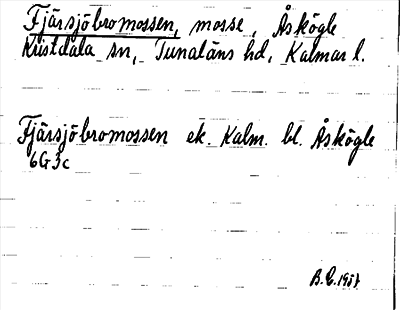 Fjärsjöbromossen, mosse, Åskögle
Kristdala sn, Tunaläns hd, Kalmar l.
Fjärsjöbromossen ek. Kalm. bl. Åskögle
6G3c